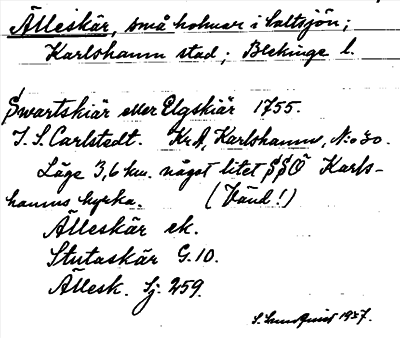 Älleskär, små holmar i Saltsjön;
Karlshamn stad; Blekinge l.
Swartskiär eller Elgskiär 1755.
J. S. Carlstedt. KrA, Karlshamn, N:o 30.
Läge 3,6 km. något litet SSÖ Karls-
hamns kyrka. (Vänd!)
Älleskär ek.
Stutaskär G.10.
Ällesk. Sj. 259.
S. Lundquist 1937.